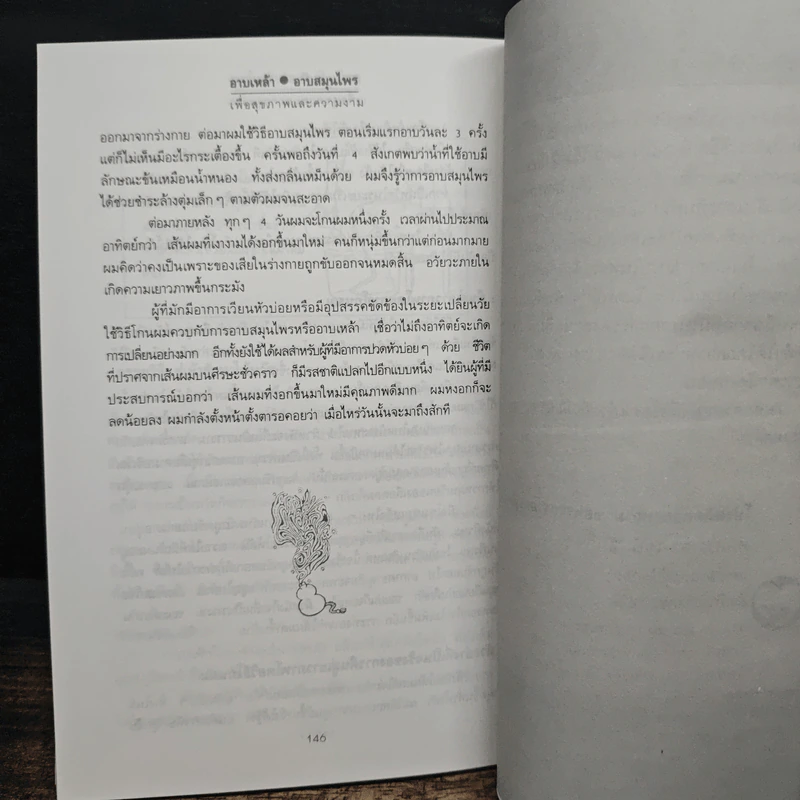 อาบเหล้า ● อาบสมุนไพร
เพื่อสุขภาพและความงาม
ออกมาจากร่างกาย ต่อมาผมใช้วิธีอาบสมุนไพร ตอนเริ่มแรกอาบวันละ 3 ครั้ง
แต่ก็ไม่เห็นมีอะไรกระเตื้องขึ้น ครั้นพอถึงวันที่ 4 สังเกตพบว่าน้ำที่ใช้อาบมี
ลักษณะข้นเหมือนน้ำหนอง ทั้งส่งกลิ่นเหม็นด้วย ผมจึงรู้ว่าการอาบสมุนไพร
ได้ช่วยชำระล้างตุ่มเล็กๆ ตามตัวผมจนสะอาด
ต่อมาภายหลัง ทุกๆ 4 วันผมจะโกนผมหนึ่งครั้ง เวลาผ่านไปประมาณ
อาทิตย์กว่า เส้นผมที่เงางามได้งอกขึ้นมาใหม่ คนก็หนุ่มขึ้นกว่าแต่ก่อนมากมาย
ผมคิดว่าคงเป็นเพราะของเสียในร่างกายถูกขับออกจนหมดสิ้น อวัยวะภายใน
เกิดความเยาวภาพขึ้นกระมัง
ผู้ที่มักมีอาการเวียนหัวบ่อยหรือมีอุปสรรคขัดข้องในระยะเปลี่ยนวัย
ใช้วิธีโกนผมควบกับการอาบสมุนไพรหรืออาบเหล้า เชื่อว่าไม่ถึงอาทิตย์จะเกิด
การเปลี่ยนอย่างมาก อีกทั้งยังใช้ได้ผลสำหรับผู้ที่มีอาการปวดหัวบ่อยๆ ด้วย ชีวิต
ที่ปราศจากเส้นผมบนศีรษะชั่วคราว ก็มีรสชาติแปลกไปอีกแบบหนึ่ง ได้ยินผู้ที่มี
ประสบการณ์บอกว่า เส้นผมที่งอกขึ้นมาใหม่มีคุณภาพดีมาก ผมหงอกก็จะ
ลดน้อยลง ผมกำลังตั้งหน้าตั้งตารอคอยว่า เมื่อไหร่วันนั้นจะมาถึงสักที
146